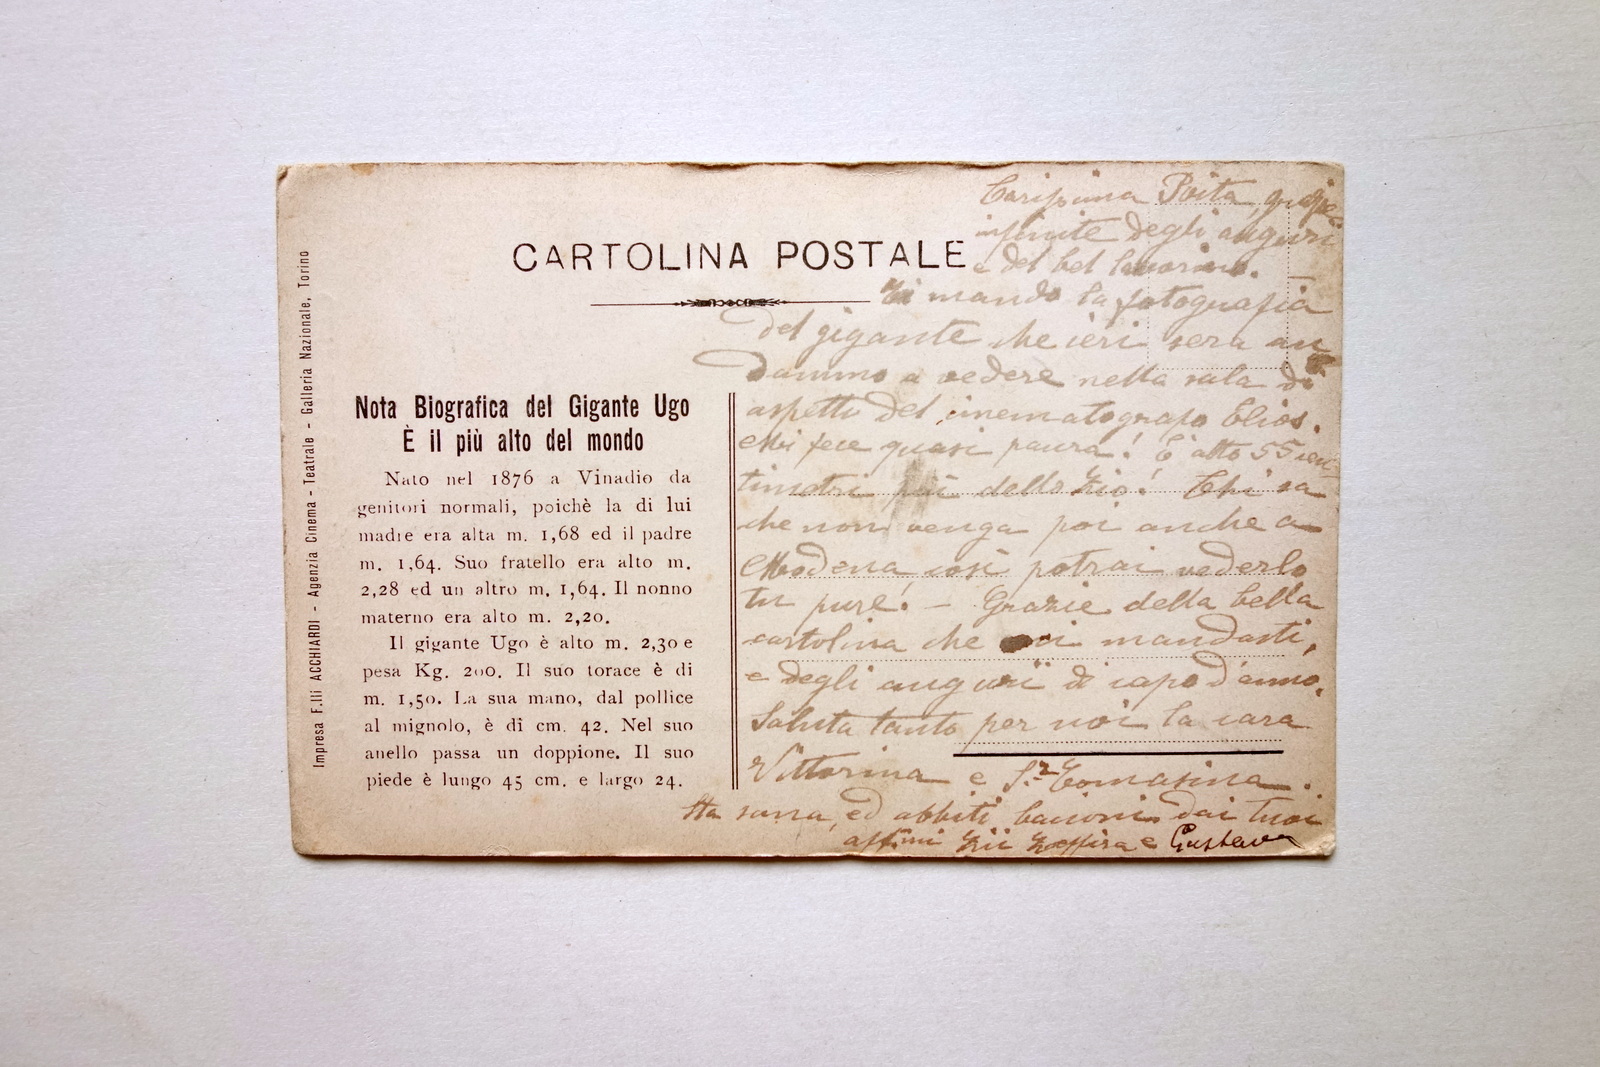 Impresa F.lli ACCHIARDI - Agenzia Cinema - Teatrale - Galleria Nazionale, Torino
CARTOLINA POSTALE
Nota Biografica del Gigante Ugo
È il più alto del mondo
Nato nel 1876 a Vinadio da
genitori normali, poichè la di lui
madre era alta m. 1,68 ed il padre
m. 1,64. Suo fratello era alto m.
2,28 ed un altro m. 1,64. Il nonno
materno era alto m. 2,20.
Il gigante Ugo è alto m. 2,30 e
pesa Kg. 200. Il suo torace è di
m. 1,50. La sua mano, dal pollice
al mignolo, è di cm. 42. Nel suo
anello passa un doppione. Il suo
piede è lungo 45 cm. e largo 24.
Carissima grazie
infinite degli auguri
e del bel lavorino.
Ti mando la fotografia
del gigante che ieri sera an
dammo a vedere nella sala di
aspetto del cinematografo Elios.
Mi fece quasi paura! È alto 55 cen
timetri più dello Zio! Chi sa
che non venga poi anche a
Modena, così potrai vederlo
tu pure! - Grazie della bella
cartolina che mi mandasti,
e degli auguri di capo d'anno.
Saluta tanto per noi la cara
Vittorina e S.ra Tomasina.
Sta sana, ed abbiti bacioni dai tuoi
aff.mi Zii Zeffira e Gustavo